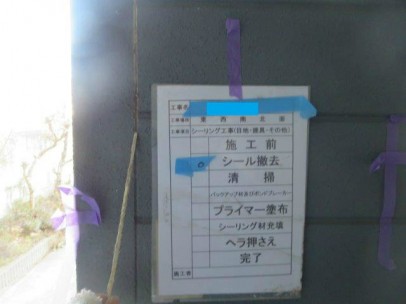 工事名
工事場所 東 西 南 北 面
工事種目 シーリング工事(目地・建具・その他)
施工前
シール撤去
清掃
バックアップ材及びボンドブレーカー
プライマー塗布
シーリング材充填
ヘラ押さえ
完了
施工者